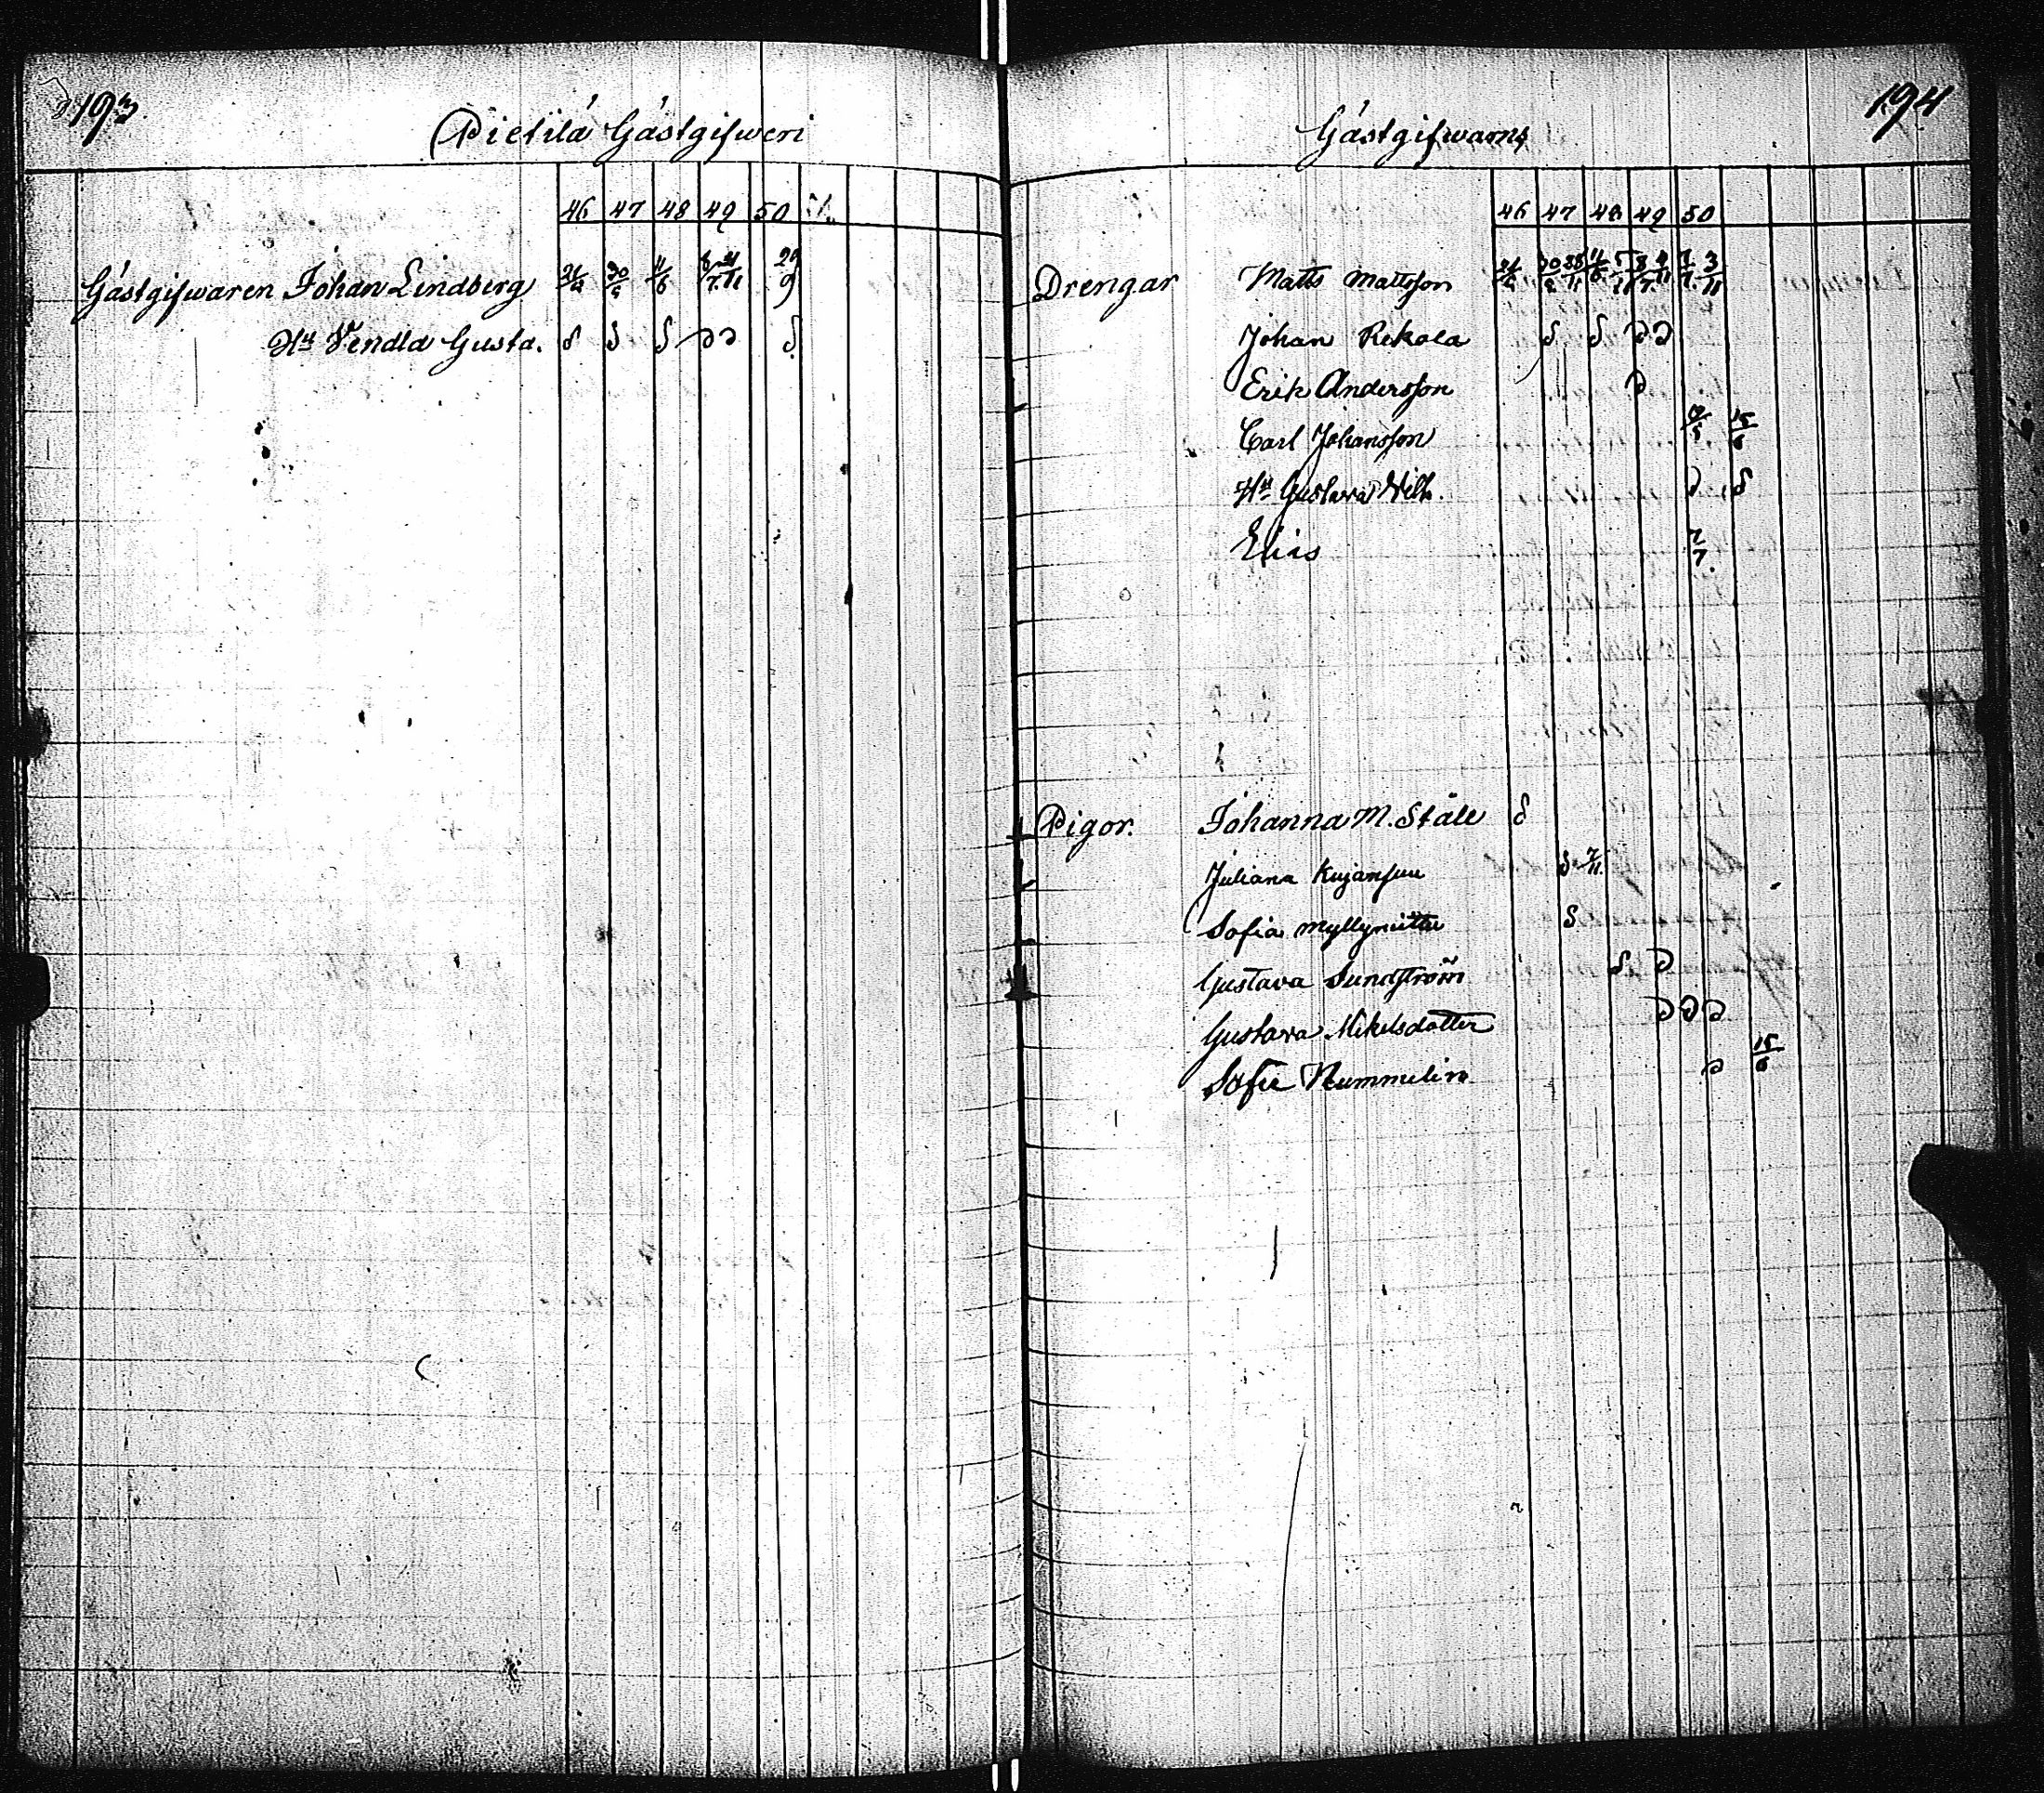 193
Pietilá Gástgifweri
46 47 48 49 50
Gástgifwaren Johan Lindberg 30/5 11/6 29/9
Hu Vendla Gusta. δ δ δ
194
Gástgifwarns
46 47 48 49 50
Drengar Matts Mattsson 3/11
Johan Rekola δ δ
Erik Andersson
Carl Johansson 15/6
Hu Gustava Wilh. δ
Elis 7/7.
Pigor. Johanna M. Ståle δ
Juliana Kujansuu δ 7/11.
Sofia Myllyniittu δ
Gustava Sundström δ
Gustava Mikelsdotter
Sofia Nummelin 15/6